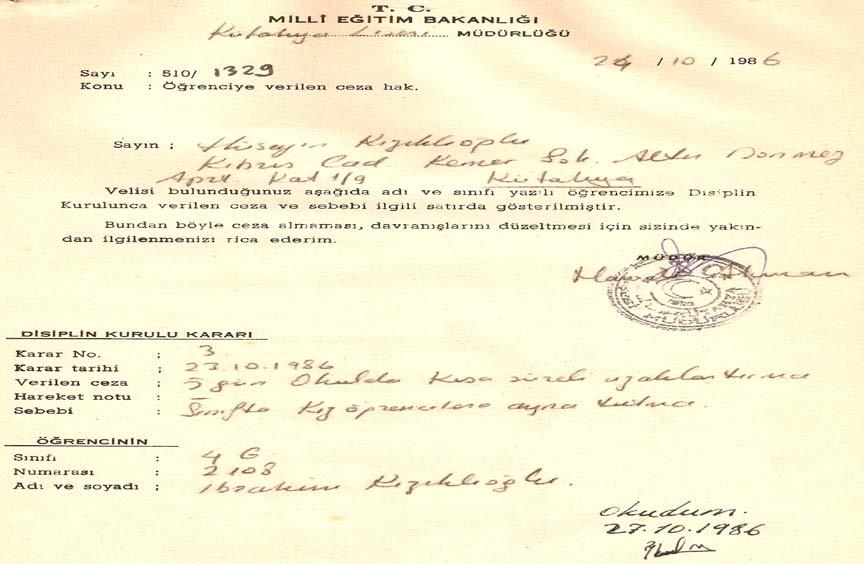 T. C.
MİLLÎ EĞİTİM BAKANLIĞI
Kütahya Lisesi MÜDÜRLÜĞÜ
24 / 10 / 1986
Sayı : 510/ 1329
Konu : Öğrenciye verilen ceza hak.
Sayın ; Hüseyin Kızıklıoğlu
Kıbrıs Cad. Kemer Sok. Altın Dönmez
Aprt. Kat 1/9 Kütahya
Velisi bulunduğunuz aşağıda adı ve sınıfı yazılı öğrencimize Disiplin
Kurulunca verilen ceza ve sebebi ilgili satırda gösterilmiştir.
Bundan böyle ceza almaması, davranışlarını düzeltmesi için sizinde yakın-
dan ilgilenmenizi rica ederim.
MÜDÜR
DİSİPLİN KURULU KARARI
Karar No. ; 3
Karar tarihi ; 23.10.1986
Verilen ceza : 5 gün Okulda Kısa süreli uzaklaştırma
Hareket notu :
Sebebi ; Sınıfta Kız öğrencilere ayna tutma.
ÖĞRENCİNİN
Sınıfı : 4 G
Numarası : 2108
Adı ve soyadı ; İbrahim Kızıklıoğlu.
Okudum.
27.10.1986